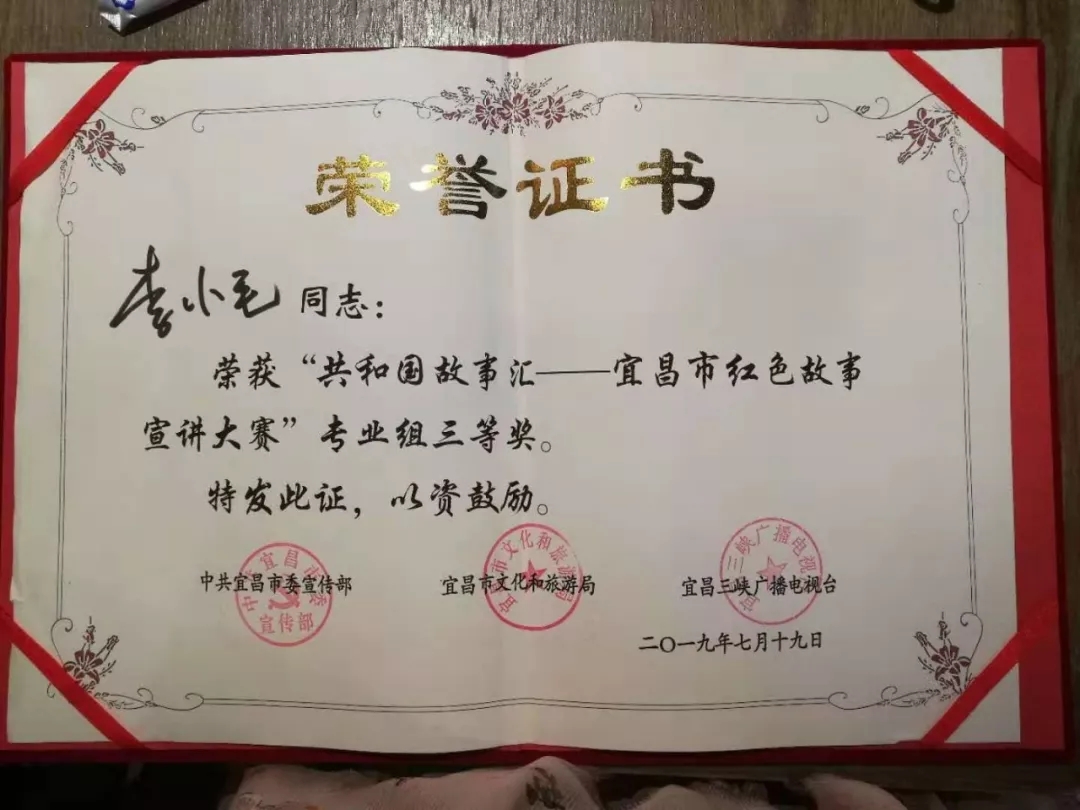 荣誉证书
李小毛 同志：
荣获“共和国故事汇——宜昌市红色故事
宣讲大赛”专业组三等奖。
特发此证，以资鼓励。
中共宜昌市委宣传部 宜昌市文化和旅游局 宜昌三峡广播电视台
中共宜昌市委
宣传部
宜昌市文化和旅游局
宜昌三峡广播电视台
二〇一九年七月十九日